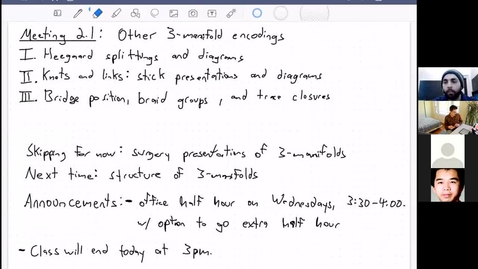 Meeting 2.1: Other 3-manifold encodings
I. Heegaard splittings and diagrams
II. Knots and links: stick presentations and diagrams
III. Bridge position, braid groups, and trace closures
Skipping for now: surgery presentations of 3-manifolds
Next time: structure of 3-manifolds
Announcements: - office half hour on Wednesdays, 3:30-4:00.
w/ option to go extra half hour
- Class will end today at 3pm.